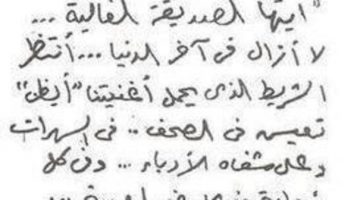 "أيتها الصديقة الغالية ...
لا أزال في آخر الدنيا ... أنتظر
الشريط الذي يحمل أغنيتنا "أيظن"
تعيس في الصحف .. في السهرات
وعلى شفاه الأدباء ... وفي كل